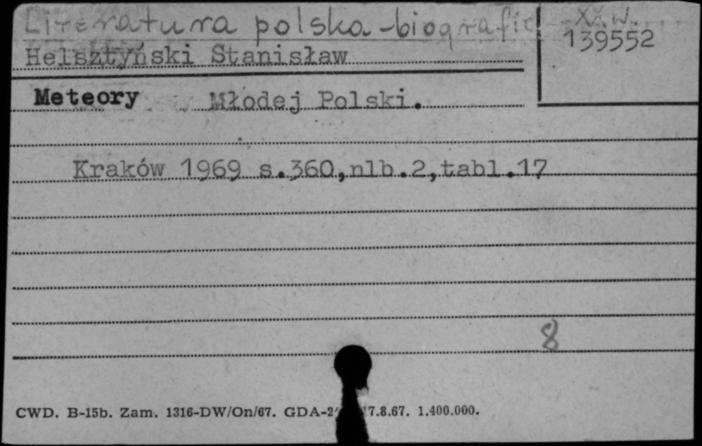 Literatura polska-biografie XX w.
139552
Helsztyński Stanisław
Meteory Młodej Polski.
Kraków 1969 s.360,nlb.2,tabl.17
8
CWD. B-15b. Zam. 1316-DW/On/67. GDA-2 7.8.67. 1.400.000.